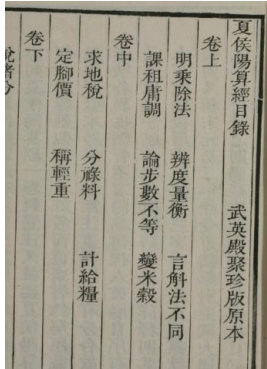 夏侯陽算經目錄 武英殿聚珍版原本
卷上
明乘除法 辨度量衡 言解法不同
課租庸調 論步數不等 變米穀
卷中
求地稅 分祿料 計給糧
定腳價 稱輕重
卷下
說諸分